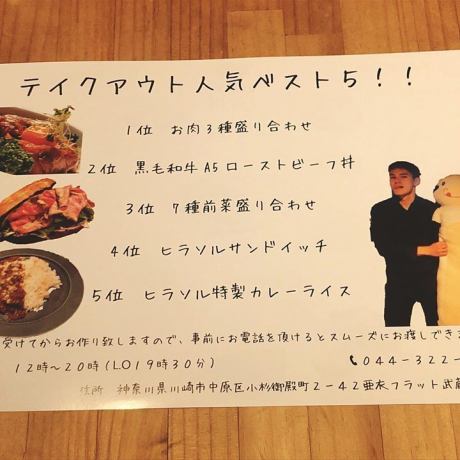 テイクアウト人気ベスト5!!
1位 お肉3種盛り合わせ
2位 黒毛和牛A5ローストビーフ丼
3位 7種前菜盛り合わせ
4位 ヒラソルサンドイッチ
5位 ヒラソル特製カレーライス
受けてからお作り致しますので、事前にお電話を頂けるとスムーズにお渡しできま
12時～20時(LO19時30分)
044-322-
住所 神奈川県川崎市中原区小杉御殿町2-42亜衣フラット武蔵